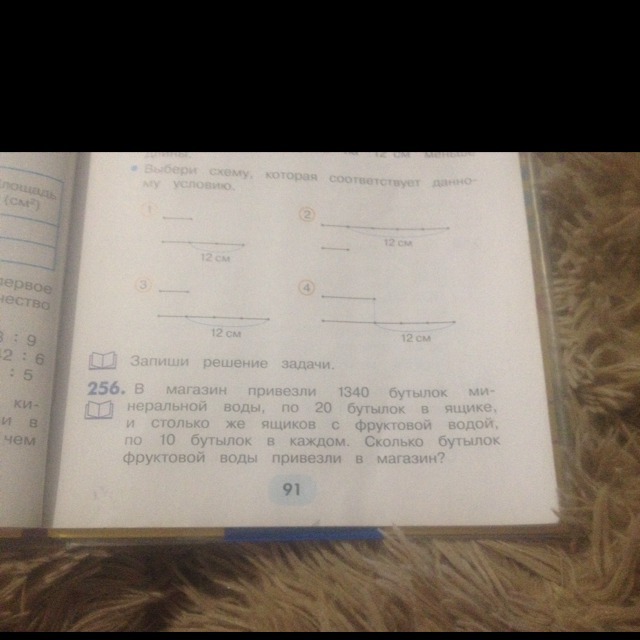 12 см меньше
• Выбери схему, которая соответствует данно-
му условию.
1
2
12 см
12 см
3
4
12 см
12 см
Запиши решение задачи.
256. В магазин привезли 1340 бутылок ми-
неральной воды, по 20 бутылок в ящике,
и столько же ящиков с фруктовой водой,
по 10 бутылок в каждом. Сколько бутылок
фруктовой воды привезли в магазин?
91
(см²)
: 9
: 6
: 5
ки-
и в
чем